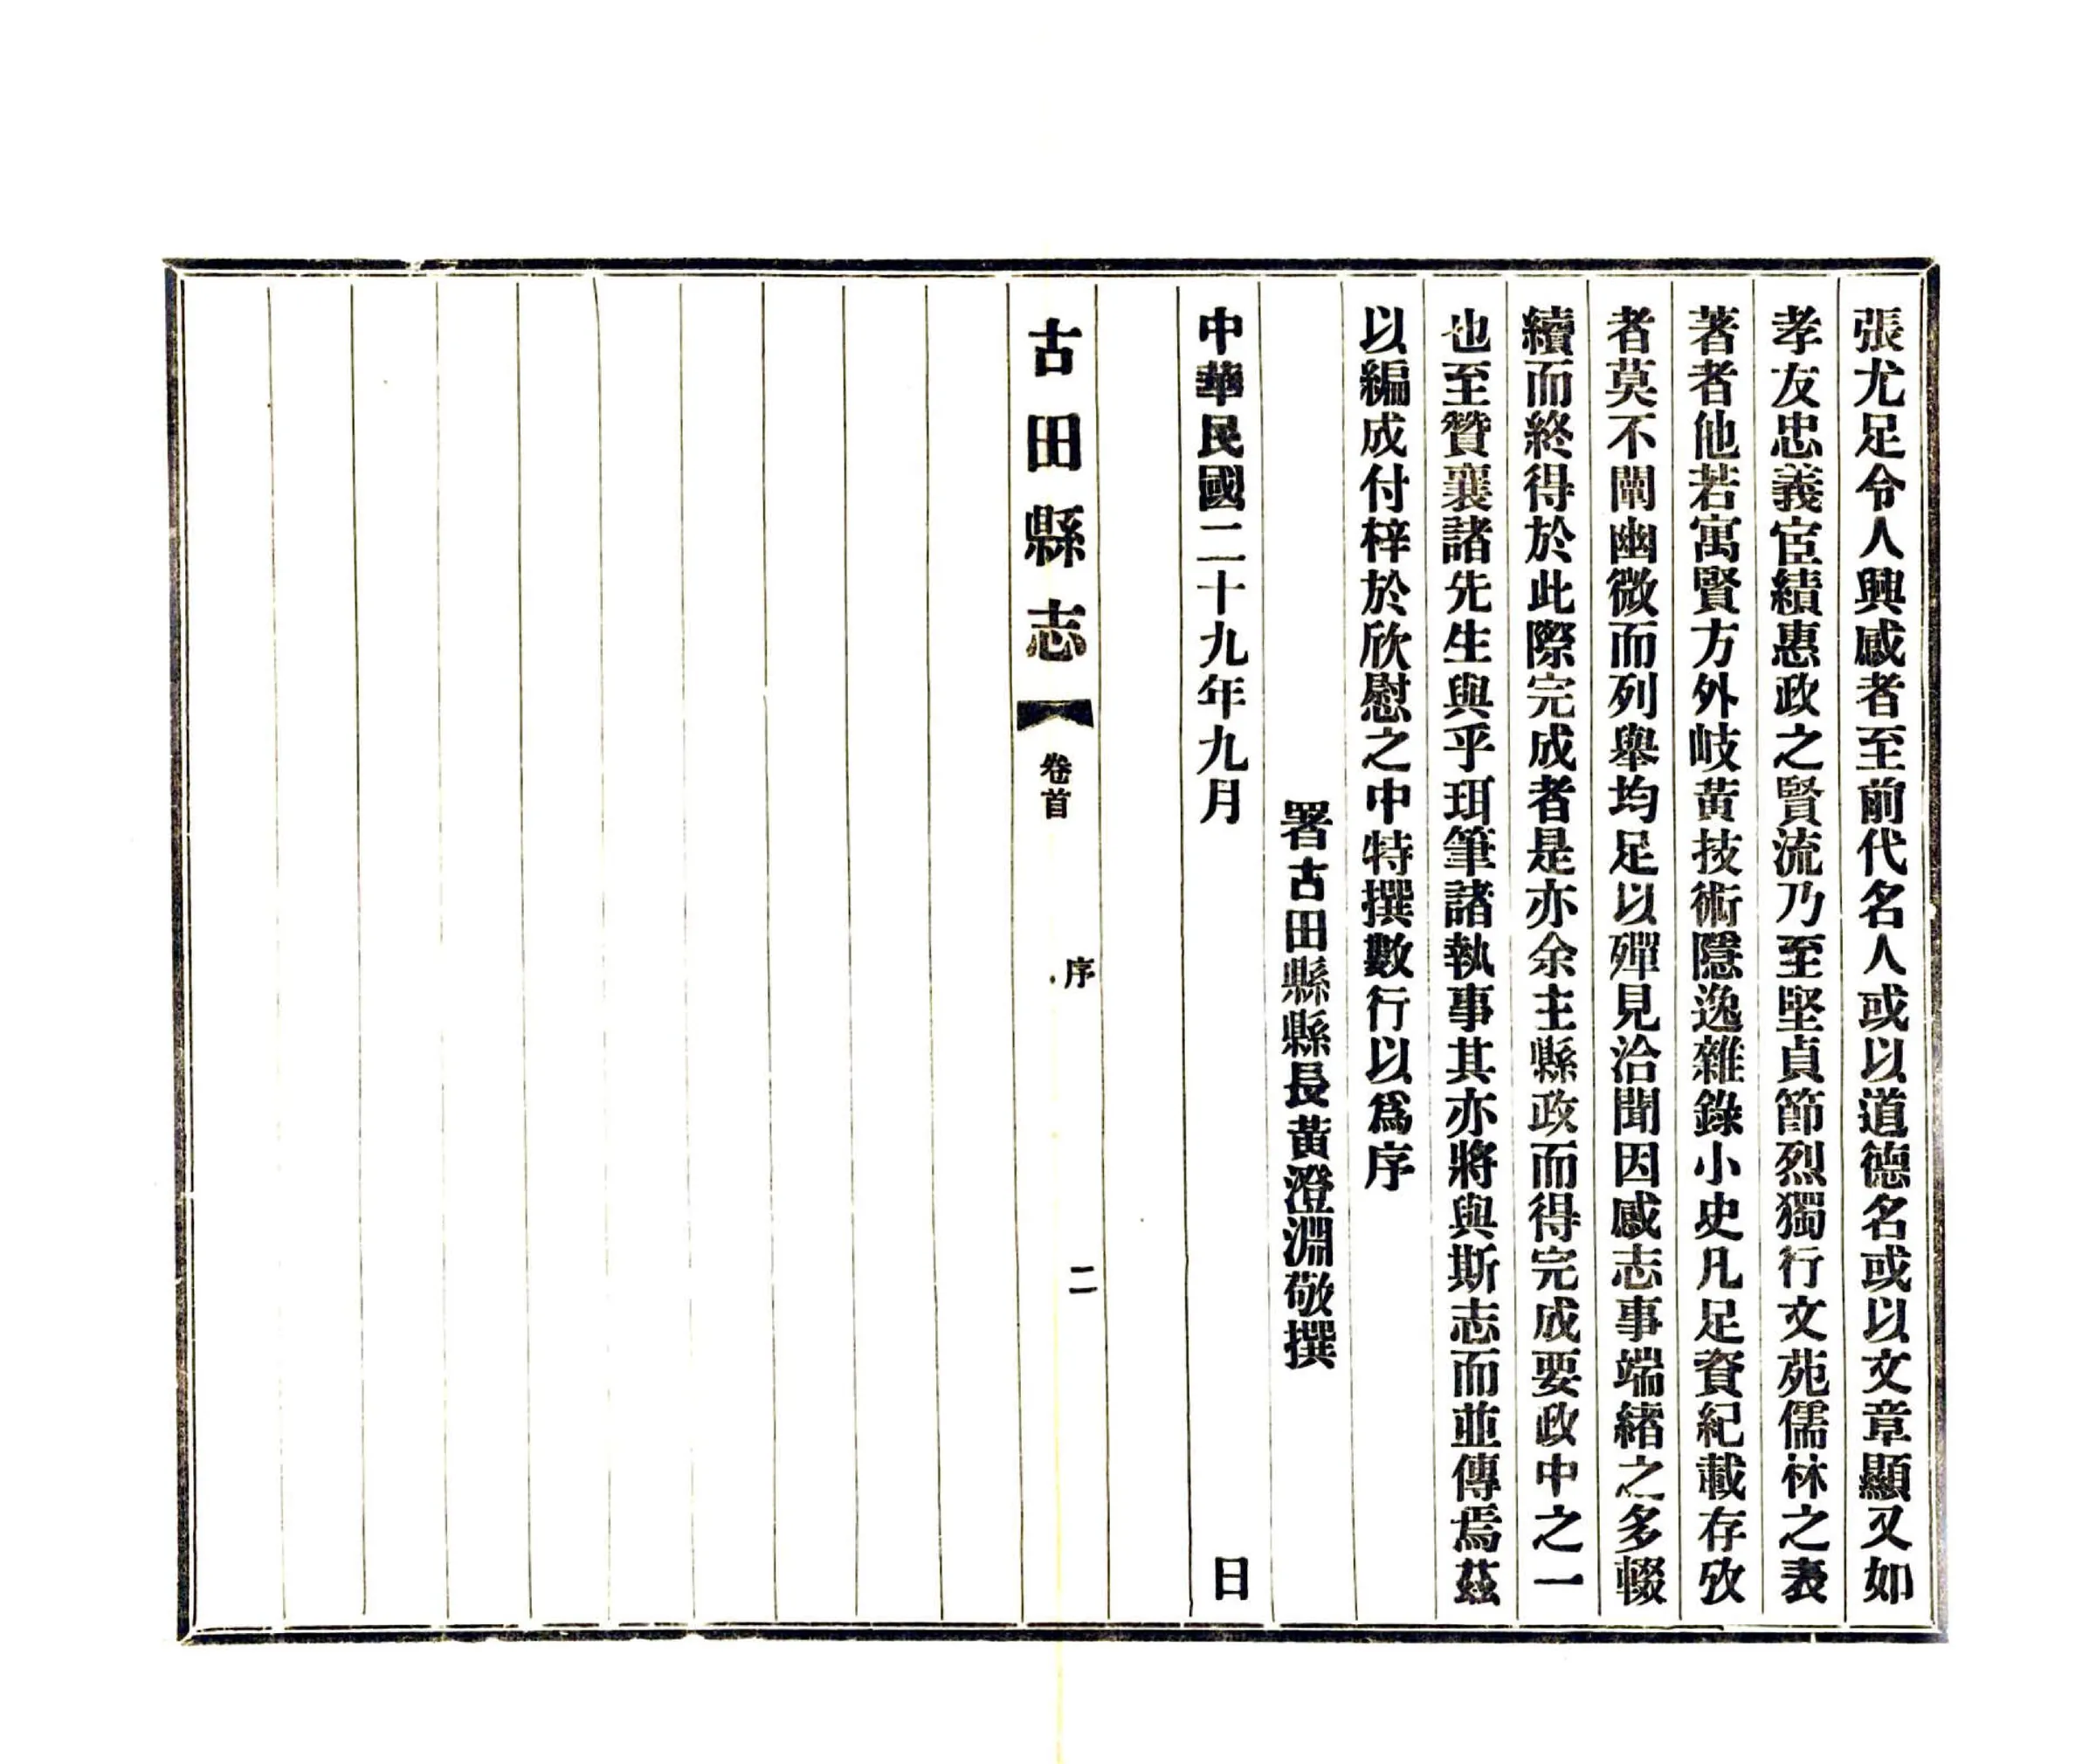 張尤足令人興感者至前代名人或以道德名或以文章顯又如
孝友忠義宦績惠政之賢流乃至堅貞節烈獨行文苑儒林之表
著者他若寓賢方外岐黃技術隱逸雜錄小史凡足資紀載存攷
者莫不闡幽微而列舉均足以殫見洽聞因感志事端緒之多輟
續而終得於此際完成者是亦余主縣政而得完成要政中之一
也至贊襄諸先生與乎珥筆諸執事其亦將與斯志而並傳焉茲
以編成付梓於欣慰之中特撰數行以爲序
署古田縣縣長黃澄淵敬撰
中華民國二十九年九月 日
古田縣志 卷首 序 二